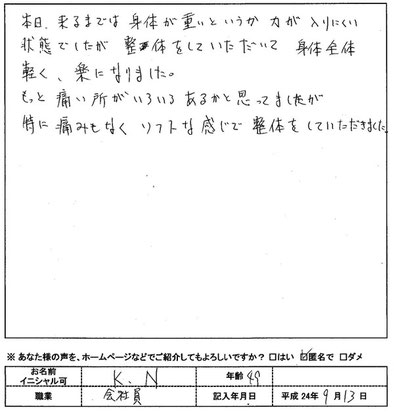 本日、来るまでは身体が重いというか力が入りにくい
状態でしたが整体をしていただいて身体全体
軽く、楽になりました。
もっと痛い所がいろいろあるかと思ってましたが
特に痛みもなくソフトな感じで整体をしていただきました
※あなた様の声を、ホームページなどでご紹介してもよろしいですか? □はい ☑匿名で □ダメ
お名前 イニシャル可 K.N 年齢 49
職業 会社員 記入年月日 平成24年9月13日